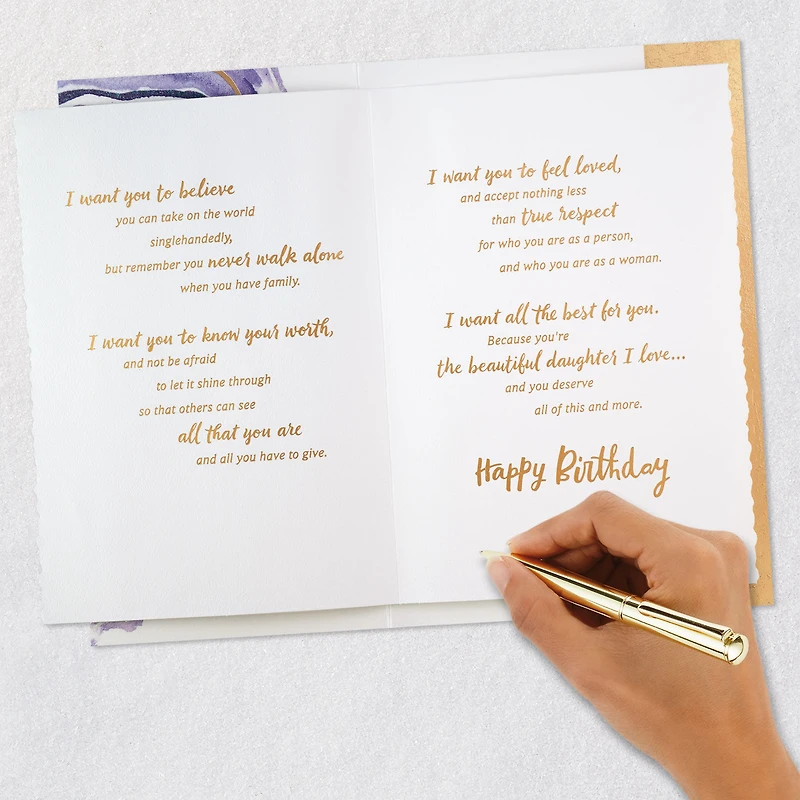 I want you to believe
you can take on the world
singlehandedly,
but remember you never walk alone
when you have family.
I want you to know your worth,
and not be afraid
to let it shine through
so that others can see
all that you are
and all you have to give.
I want you to feel loved,
and accept nothing less
than true respect
for who you are as a person,
and who you are as a woman.
I want all the best for you.
Because you're
the beautiful daughter I love...
and you deserve
all of this and more.
Happy Birthday